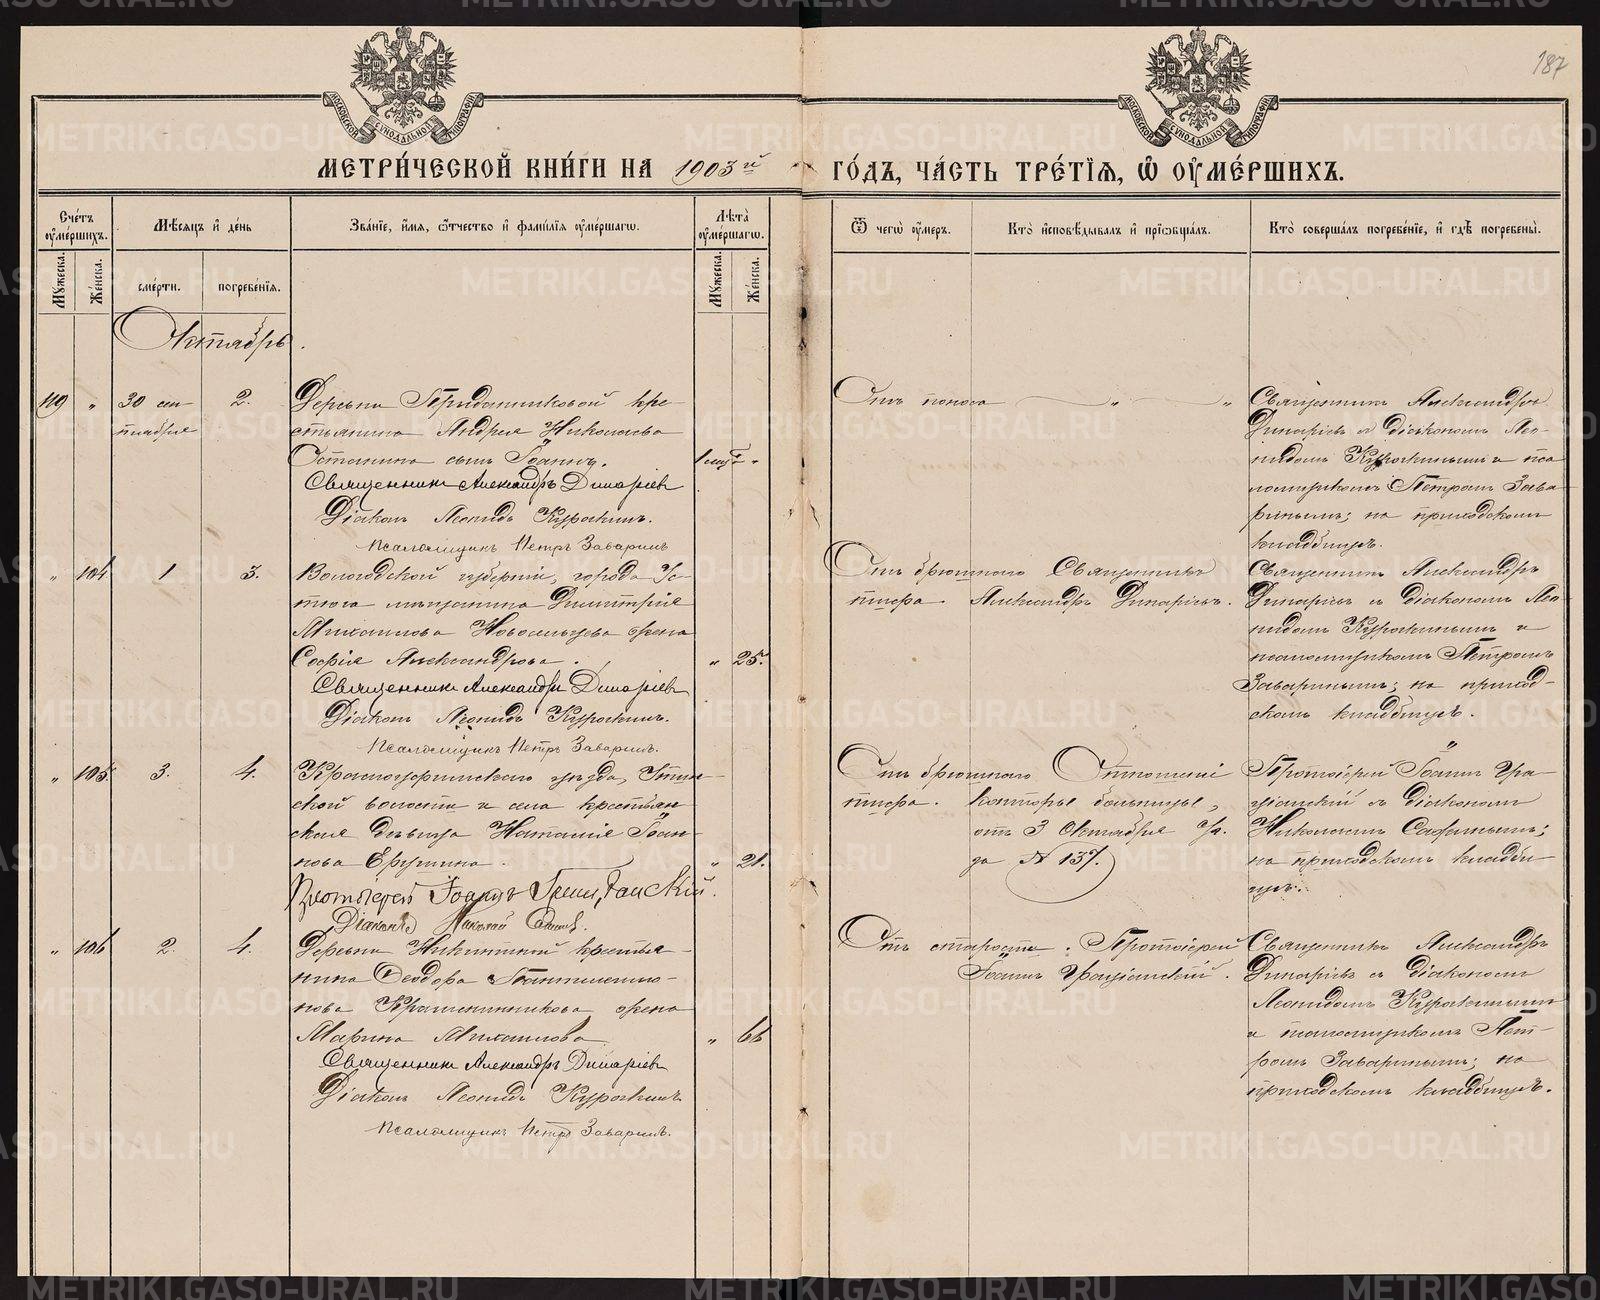 187
МЕТРИ́ЧЕСКОЙ КНИ́ГИ НА 1903 й ГО́ДЪ, ЧА́СТЬ ТРЕ́ТІѦ, Ѡ ОУ҆МЕ́РШИХЪ.
Сче́тъ оу҆ме́ршихъ.
Мѣ́сяцъ и҆ де́нь
Зва́нїе, и҆́мѧ, ѻ҆́тчество и҆ фами́лїѧ оу҆ме́ршагѡ.
Лѣ́та оу҆ме́ршагѡ.
Ѿ чегѡ̀ оу҆́меръ.
Кто̀ и҆сповѣ́дывалъ и҆ прїѡбща́лъ.
Кто̀ соверша́лъ погребе́нїе, и҆ гдѣ̀ погребены̀.
Мꙋ́жеска.
Же́нска.
сме́рти.
погребе́нїѧ.
Мꙋ́жеска.
Же́нска.
Октябрь.
119 " 30 сен- 2.
тября
Деревни Приданниковой кре
стьянина Андрея Николаева
Останина сынъ Іоаннъ.
1 мѣс. "
Священникъ Александръ Динаріевъ
Діаконъ Леонидъ Курочкинъ.
Псаломщикъ Петръ Заваринъ
Отъ поноса " "
Священникъ Александръ
Динаріевъ с діакономъ Лео-
нидомъ Курочкинымъ и пса
ломщикомъ Петромъ Зава-
ринымъ; на приходскомъ
кладбищѣ.
" 104 1 3.
Вологодской губерніи, города Ус-
тюга мѣщанина Димитрія
Михаилова Новосельцева жена
Софія Александрова.
" 25.
Священникъ Александръ Динаріевъ
Діаконъ Леонидъ Курочкинъ.
Псаломщикъ Петръ Заваринъ.
Отъ брюшного
тифа.
Священникъ
Александръ Динаріевъ.
Священникъ Александръ
Динаріевъ с діакономъ Лео-
нидомъ Курочкинымъ и
псаломщикомъ Петромъ
Заваринымъ; на приход-
скомъ кладбищѣ.
" 105 3. 4.
Красноуфимскаго уѣзда,
ской волости и села крестьян
ская дѣвица Наталія Іоан-
нова
" 21.
Протоіерей Іоаннъ Граціанскій.
Діаконъ Николай
Отъ брюшного
тифа.
Отношеніе
конторы больницы,
отъ 3 Октября
за № 137.
Протоіерей Іоаннъ Гра
ціанскій с діакономъ
Николаемъ
на приходскомъ кладби
щѣ.
" 106 2. 4.
Деревни Никитиной крестья-
нина Ѳеодора Пантелеимо-
нова Крашенинникова жена
Марина Михаилова
" 66
Священникъ Александръ Динаріевъ
Діаконъ Леонидъ Курочкинъ
Псаломщикъ Петръ Заваринъ.
Отъ старости.
Протоіерей
Іоаннъ Граціанскій.
Священникъ Александръ
Динаріевъ с діакономъ
Леонидомъ Курочкинымъ
и псаломщикомъ Пет-
ромъ Заваринымъ; на
приходскомъ кладбищѣ.
METRIKI.GASO-URAL.RU